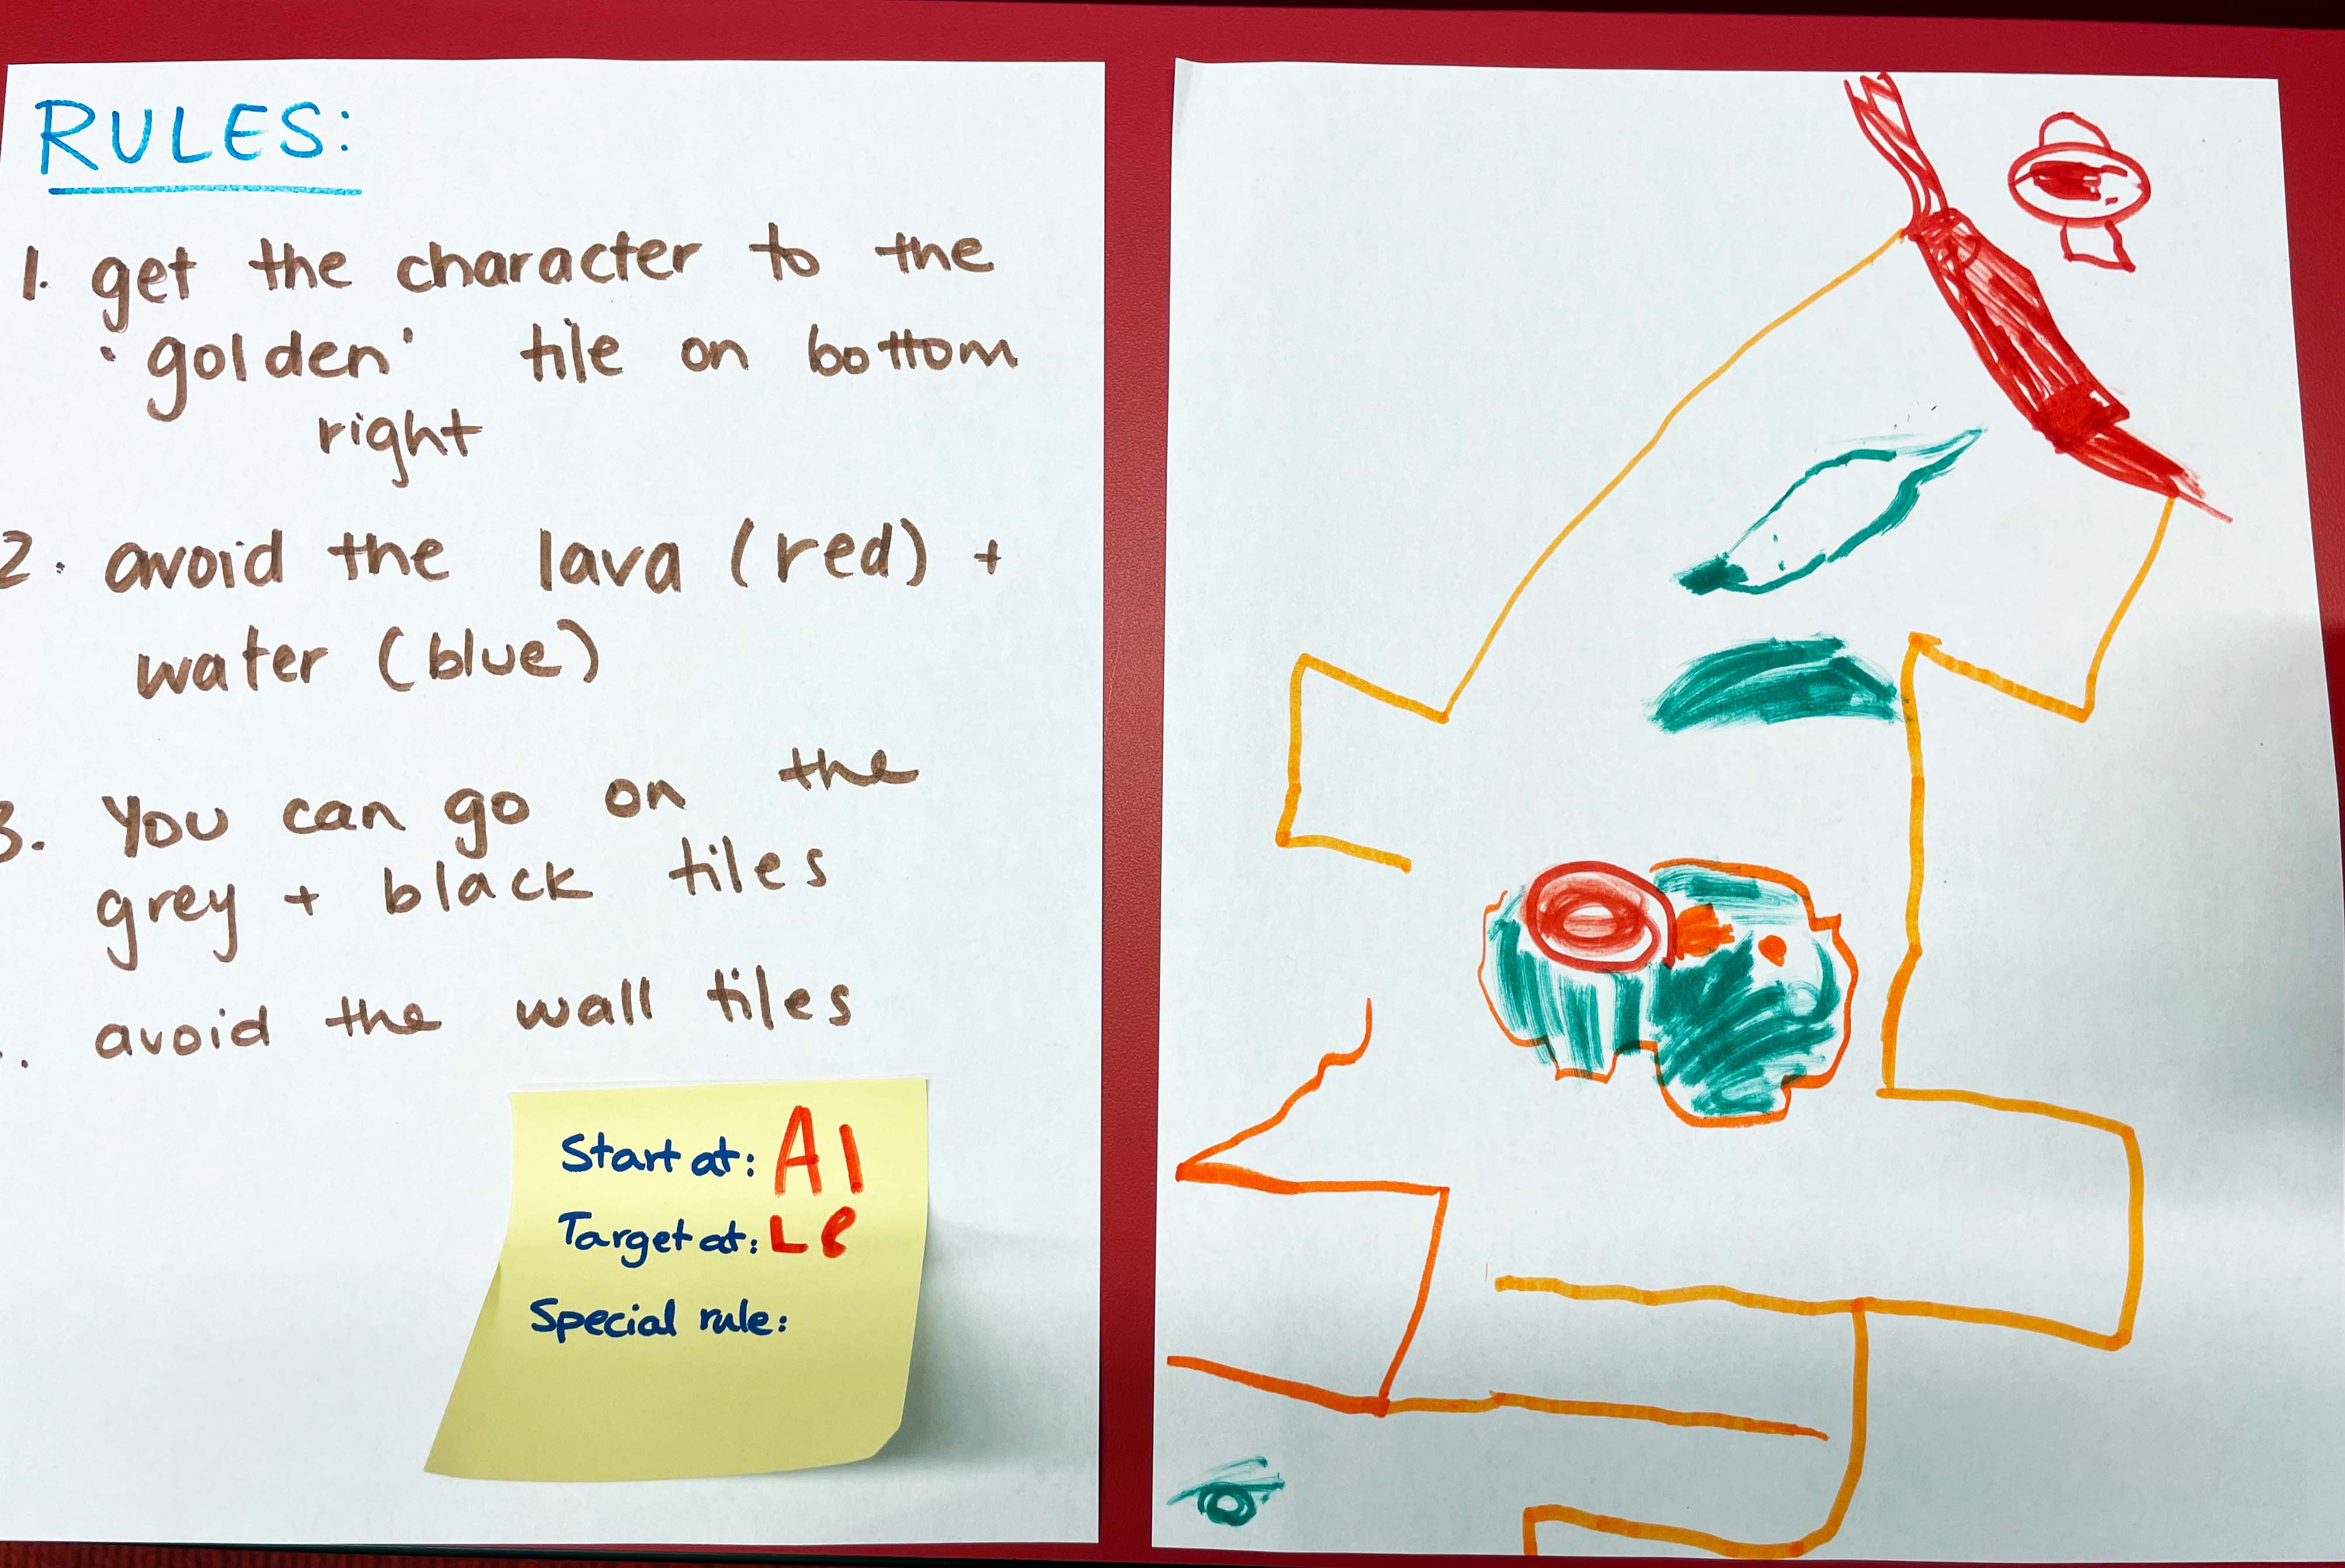 RULES:
1. get the character to the
'golden' tile on bottom
right
2. avoid the lava (red) +
water (blue)
3. You can go on the
grey + black tiles
. avoid the wall tiles
Start at: A1
Target at:
Special rule: